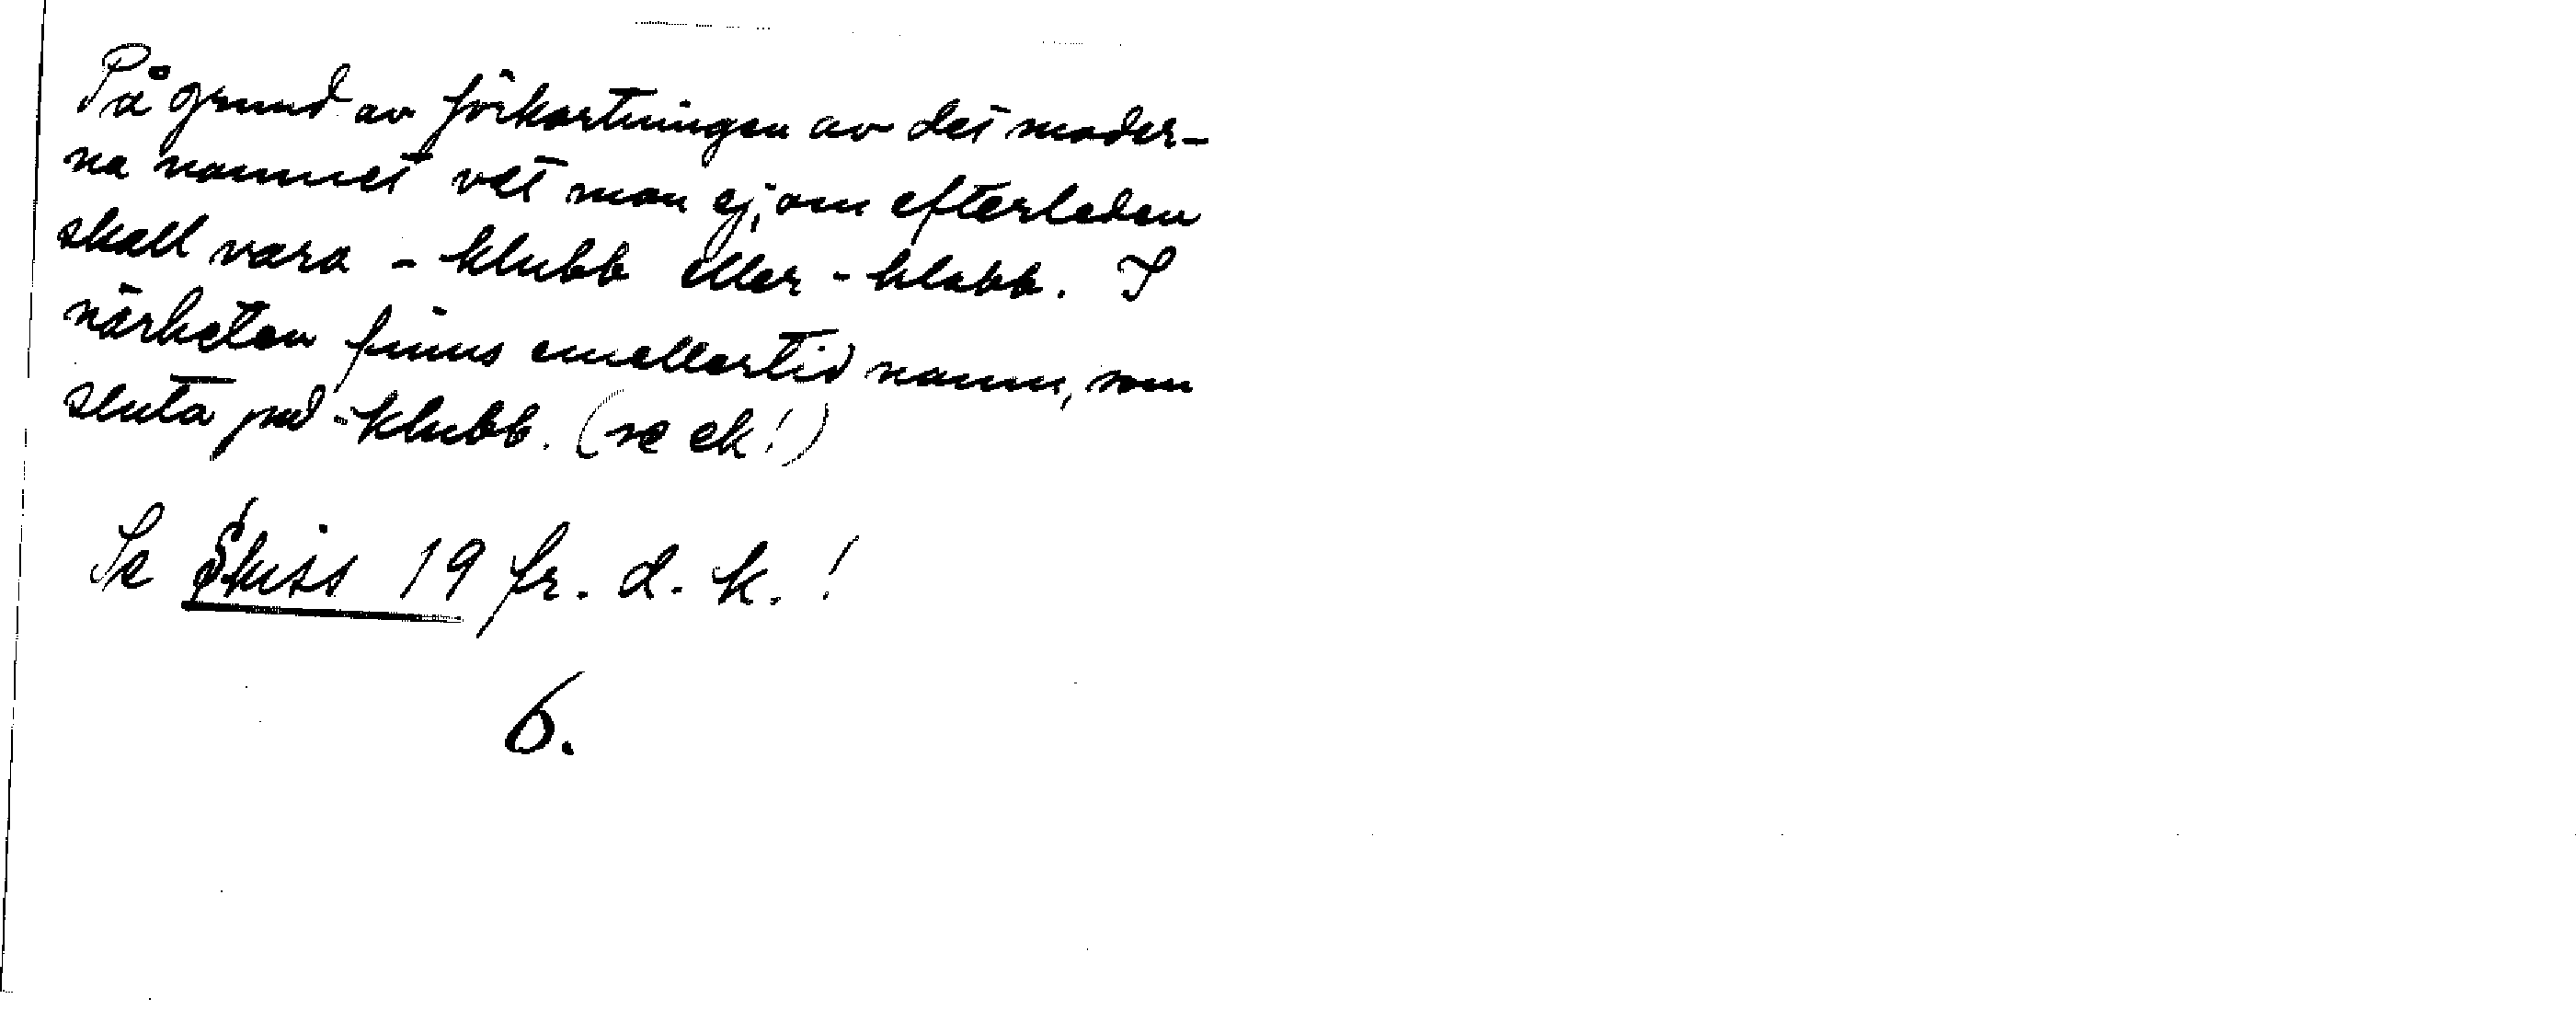 På grund av förkortningen av det moder-
na namnet vet man ej, om efterleden
skall vara -klubb eller -klabb. I
närheten finns emellertid namn, som
sluta på -klubb. (se ek!)
Se Skiss 19 fr. d. k.!
6.